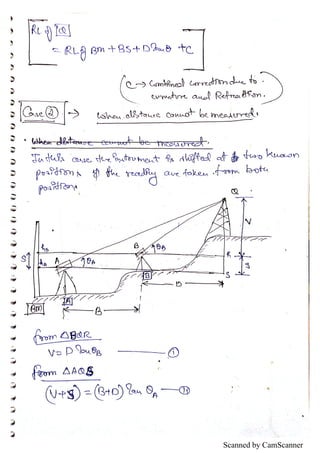 RL of Q
= RL of BM + BS + D tanθ + C
C → Combined correction due to
curvature and Refraction.
Case ② → when distance cannot be measured.
• when distance cannot be measured.
In this case the instrument is shifted at two known
positions & the reading are taken from both
position.
Q
V
B θB
A θA
hB
hA
S
R
S
S
B
D
A
B
BM
from ΔBQR
V = D tanθB — ①
from ΔAQS
(V+S) = (B+D) tan θA — ②
Scanned by CamScanner